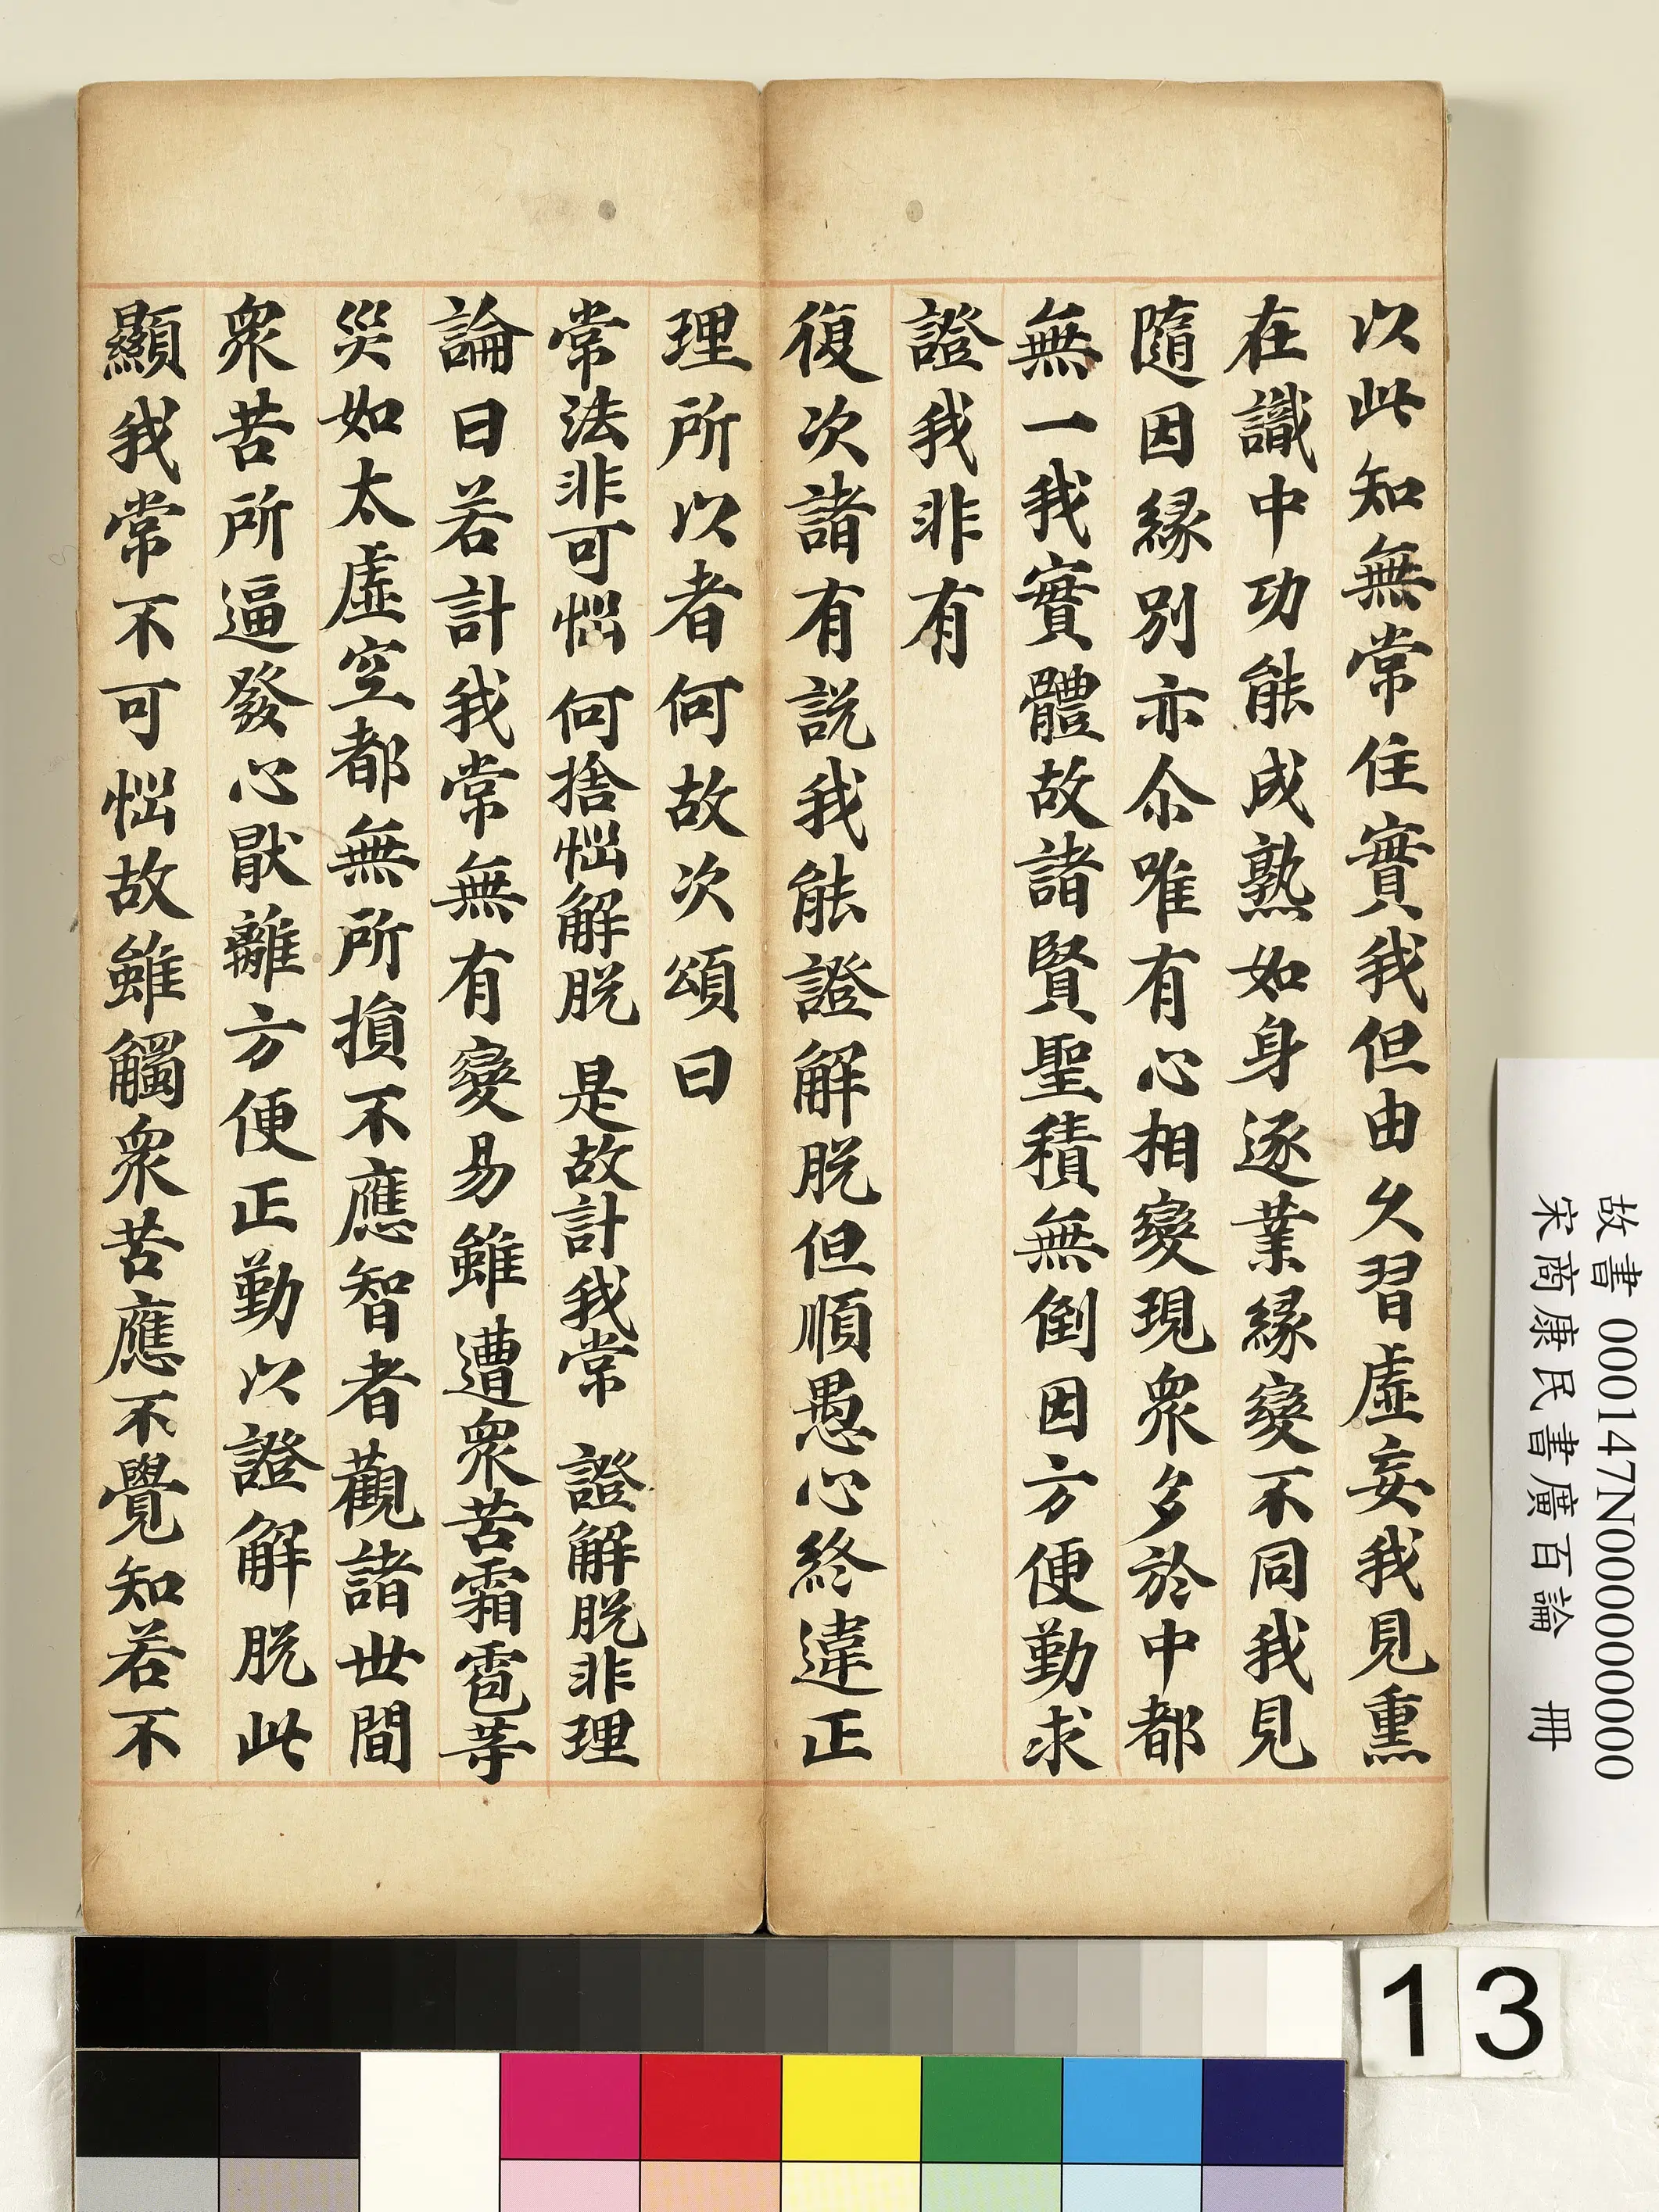 以此知無常住實我但由久習虛妄我見熏
在識中功能成熟如身逐業緣變不同我見
隨因緣別亦尒唯有心相變現衆多於中都
無一我實體故諸賢聖積無倒因方便勤求
證我非有
復次諸有說我能證解脫但順愚心終違正
理所以者何故次頌曰
常法非可惱 何捨惱解脫 是故計我常 證解脫非理
論曰若計我常無有變易雖遭衆苦霜雹等
災如太虛空都無所損不應智者觀諸世間
衆苦所逼發心厭離方便正勤以證解脫此
顯我常不可惱故雖觸衆苦應不覺知若不
故書 000147N000000000
宋商康民書廣百論 冊
13